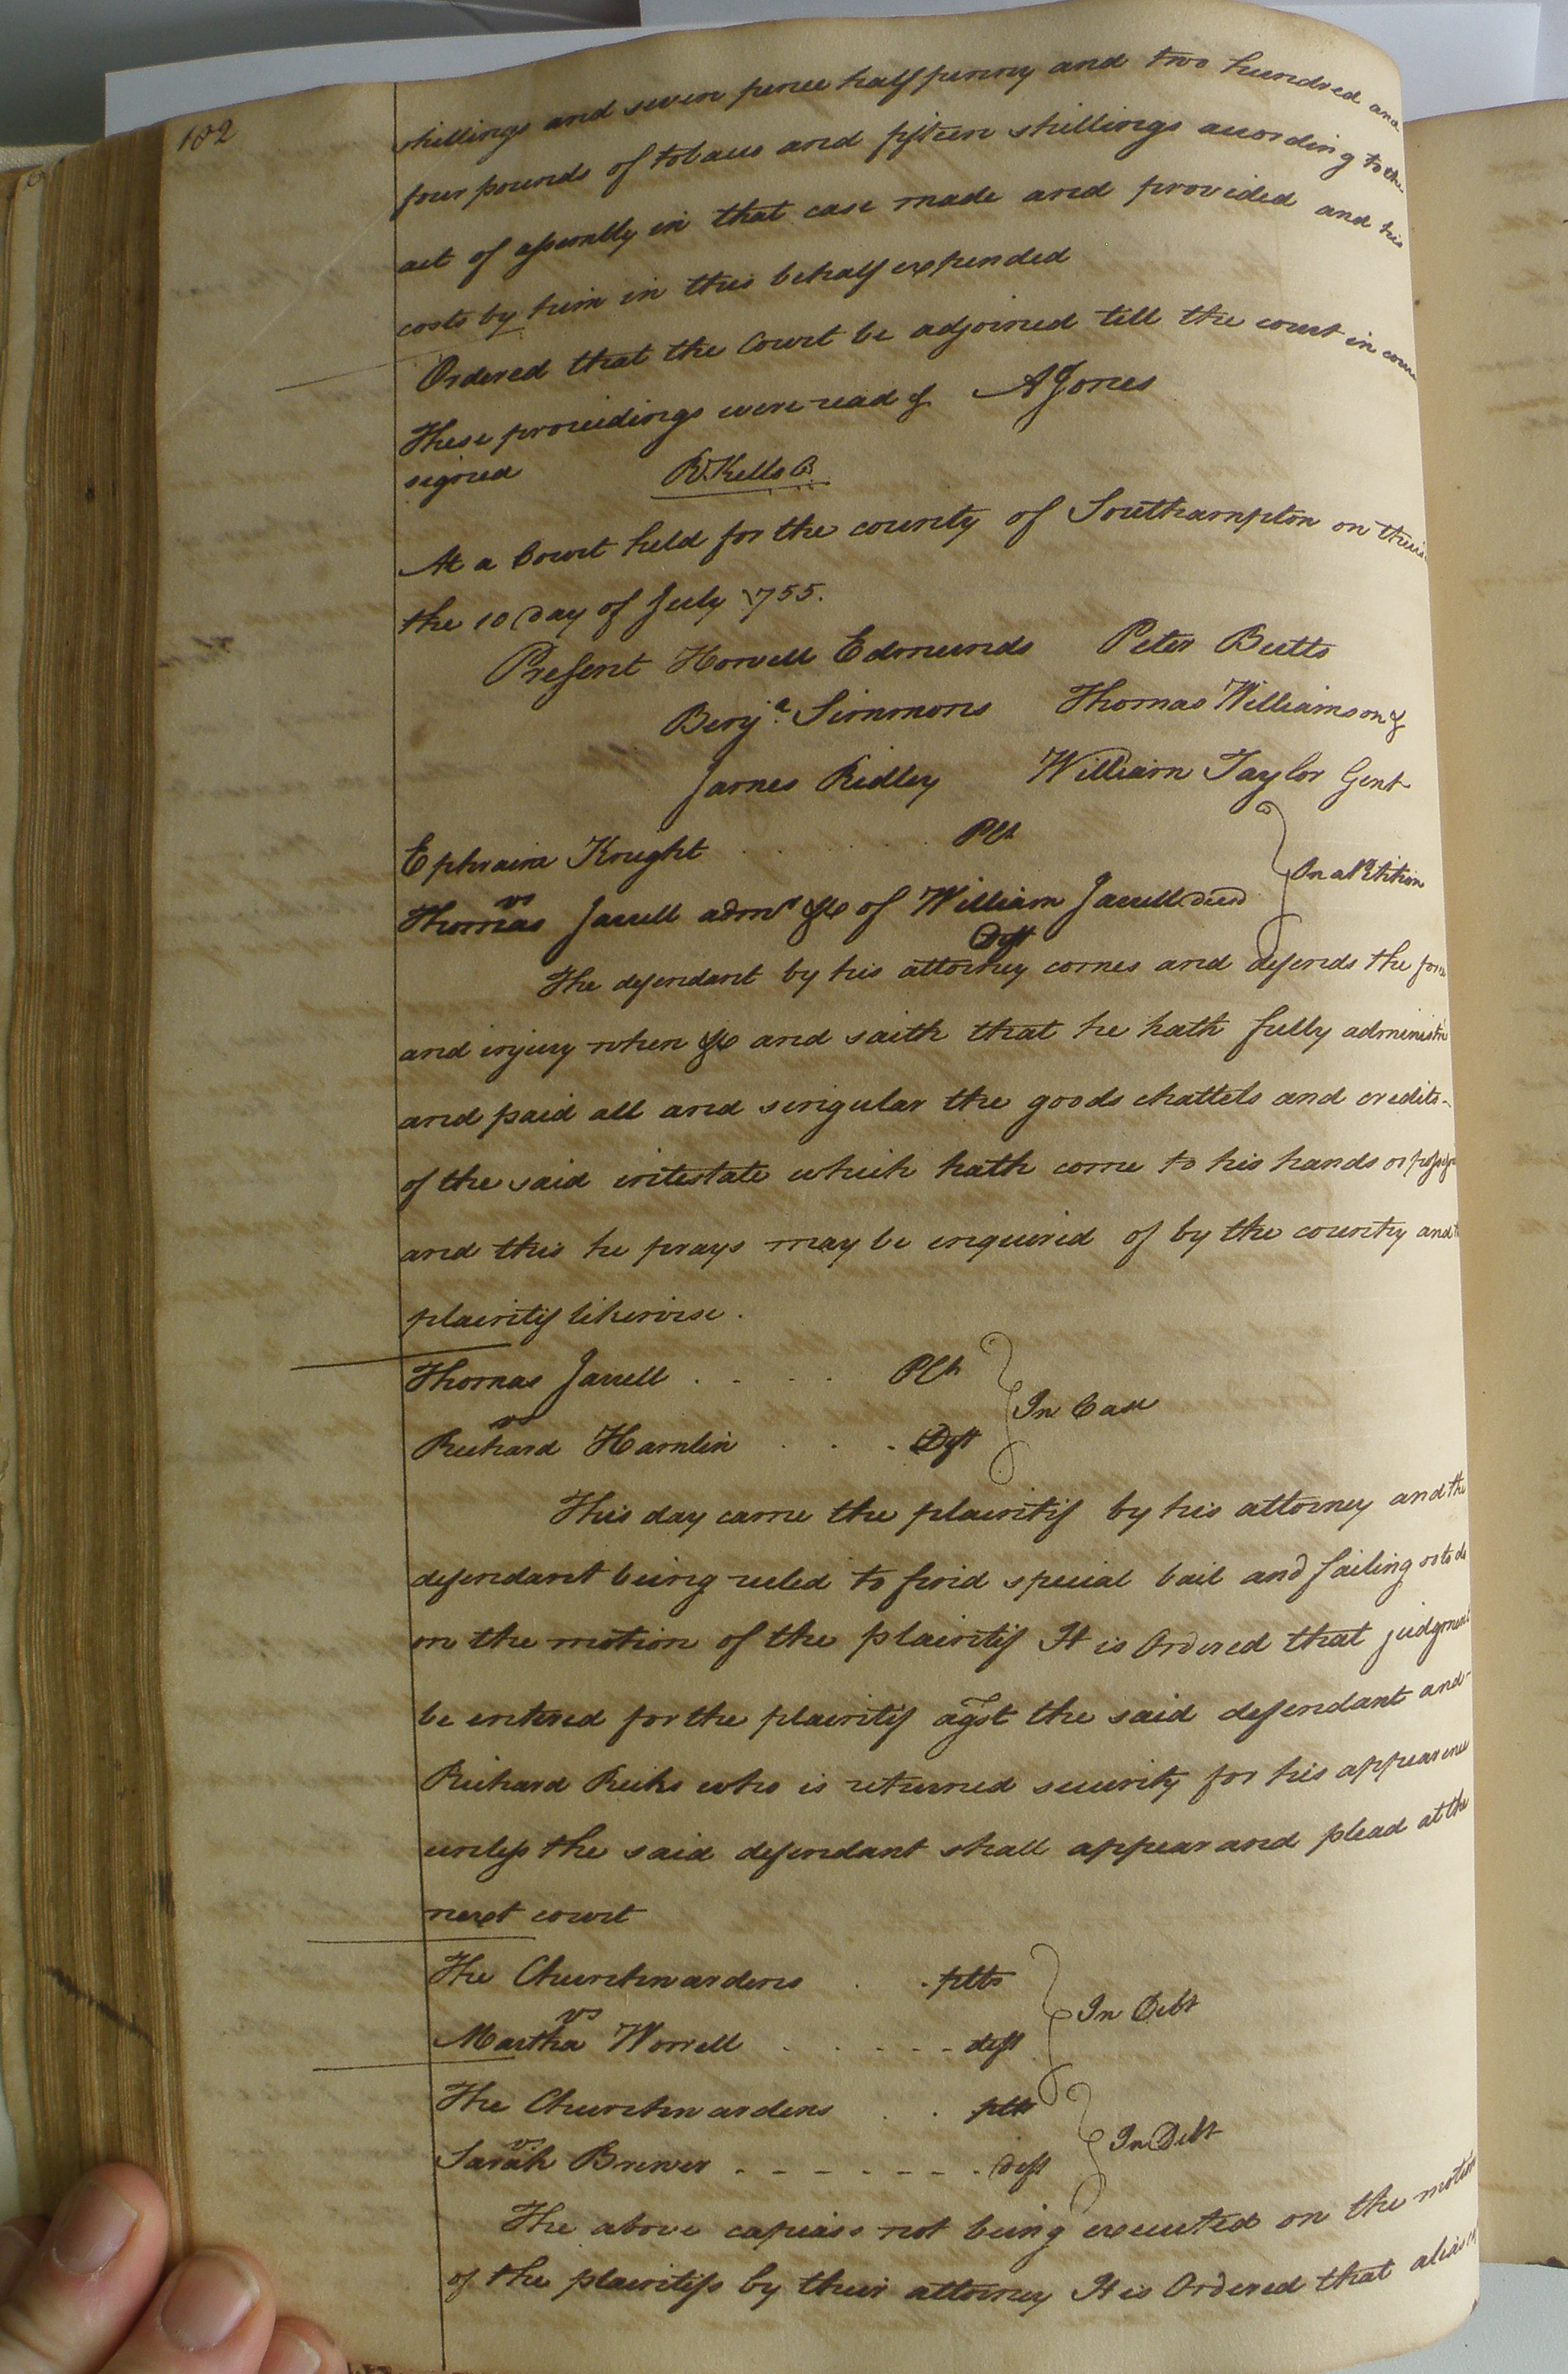 182
shillings and seven pence half penny and two hundred and
four pounds of tobacco and fifteen shillings according to the
act of assembly in that case made and provided and his
costs by him in this behalf expended
Ordered that the Court be adjoined till the court in
These proceedings were read & A Jones
signed R. Kello
At a Court held for the county of Southampton on
the 10 Day of July 1755.
Present Howell Edmunds Peter Butts
Benja. Simmons Thomas Williamson &
James Ridley William Taylor Gent
Ephraim Knight Plt
vs On a Petition
Thomas Jarrell admr &c of William Jarrell decd
Deft
The defendant by his attorney comes and defends the force
and injury when &c and saith that he hath fully administr
and paid all and singular the goods chattels and credits
of the said intestate which hath come to his hands or
and this he prays may be enquired of by the country and
plaintif likewise.
Thomas Jarrell . . . . Plt
vs In Case
Richard Hamlin . . . Deft
This day came the plaintif by his attorney and the
defendant being ruled to find special bail and failing so to do
on the motion of the plaintif It is Ordered that judgment
be entered for the plaintif agst the said defendant and
Richard Ricks who is returned security for his appearence
unless the said defendant shall appear and plead at the
next court
The Churchwardens . . plts
vs In Debt
Martha Worrell . . . . . deft
The Churchwardens . . plts
vs In Debt
Sarah Brewer . . . . . . . deft
The above capiass not being executed on the motion
of the plaintifs by their attorney It is Ordered that alias